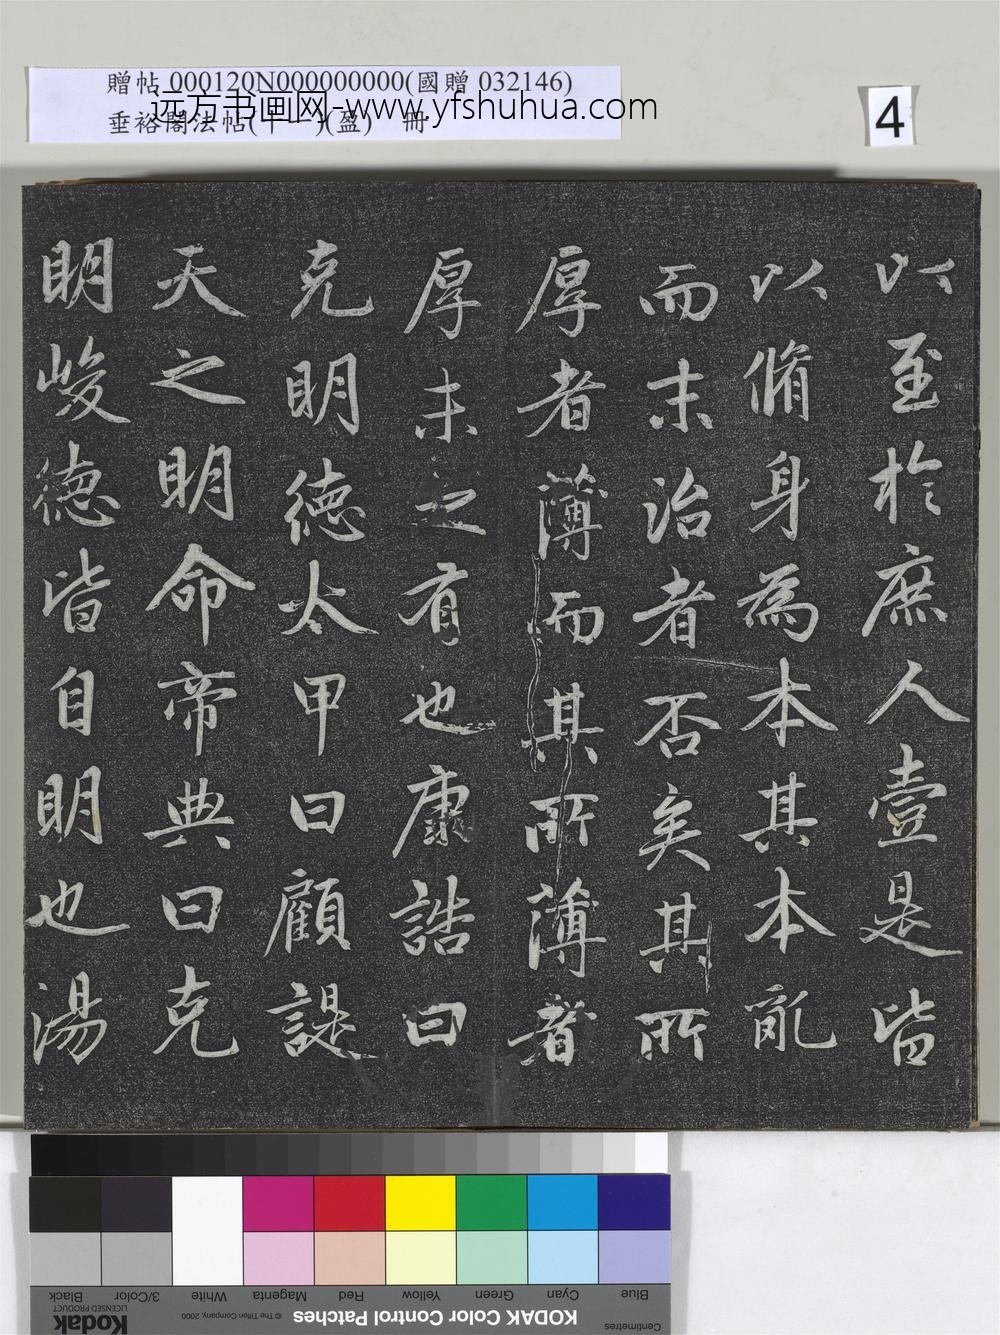 贈帖 000120N000000000(國贈 032146)
远方书画网-www.yfshuhua.com
垂裕閣法帖(十一)(盈) 冊
4
以至於庶人壹是皆
以脩身為本其本亂
而末治者否矣其所
厚者薄而其所薄者
厚未之有也康誥曰
克明德太甲曰顧諟
天之明命帝典曰克
明峻德皆自明也湯
Blue
Cyan
Green
Yellow
Red
Magenta
White
3/Color
Black
Centimetres
KODAK Color Control Patches
© The Tiffen Company, 2000
Kodak
LICENSED PRODUCT